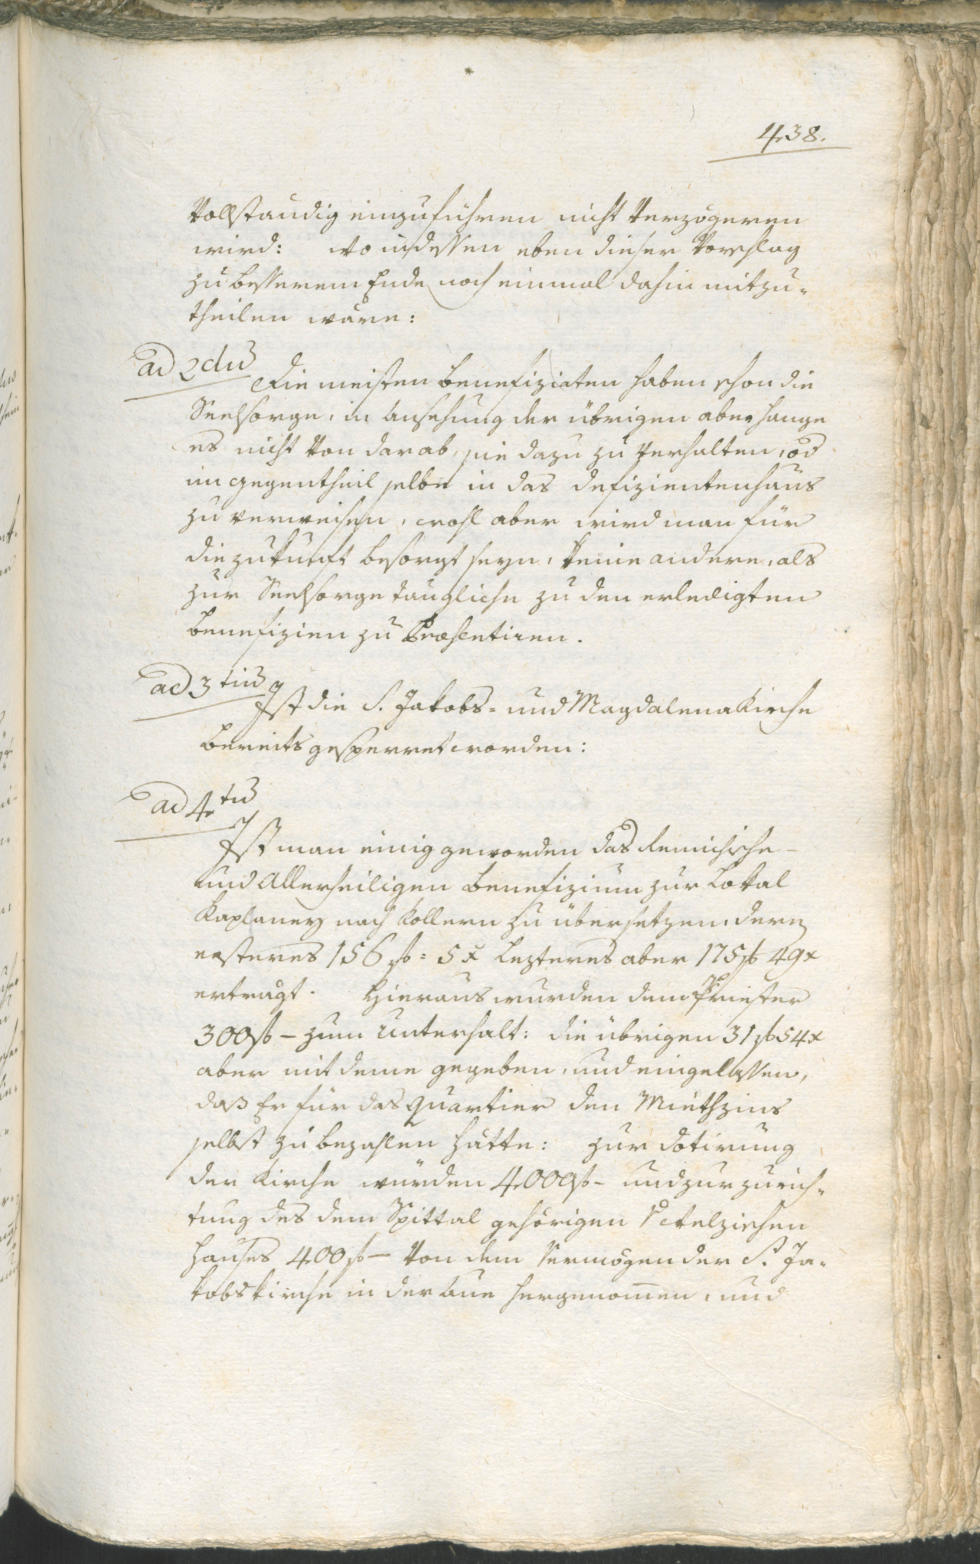 438.
Vollständig einzuführen nicht Verzögeren
wird: wo indessen eben dieser Vorschlag
zu besserem Ende noch einmal dahin mitzu-
theilen wäre:
ad 2dum
Die meisten Benefiziaten haben schon die
Seelsorge, in Ansehung der übrigen aber hange
es nicht von dar ab, sie dazu zu verhalten, od
im Gegentheil selbe in das Defizientenhaus
zu verweisen, wohl aber wird man für
die Zukunft besorgt seyn, keine andere, als
zur Seelsorge taugliche zu den erledigten
Benefizien zu Præsentiren.
ad 3tium
Ist die S. Jakobs- und Magdalena Kirche
bereits gesperret worden:
ad 4tum
Ist man einig geworden das
und Allerheiligen Benefizium zur Lokal
Kaplaney nach Kollern zu übersetzen, deren
ersteres 156 f: 5 x Lezteres aber 175 f 49 x
ertragt. Hieraus wurden dem Priester
300 f – zum Unterhalt: die übrigen 31 f 54 x
aber mit deme gegeben, und eingelassen,
daß Er für das Quartier den Miethzins
selbst zu bezahlen hätte: zur Dotirung
der Kirche würden 4000 f – und zur zurich-
tung des dem Spittal gehörigen
Hauses 400 f – Von dem Vermögen der S. Ja-
kobskirche in der Aue hergenommen, und